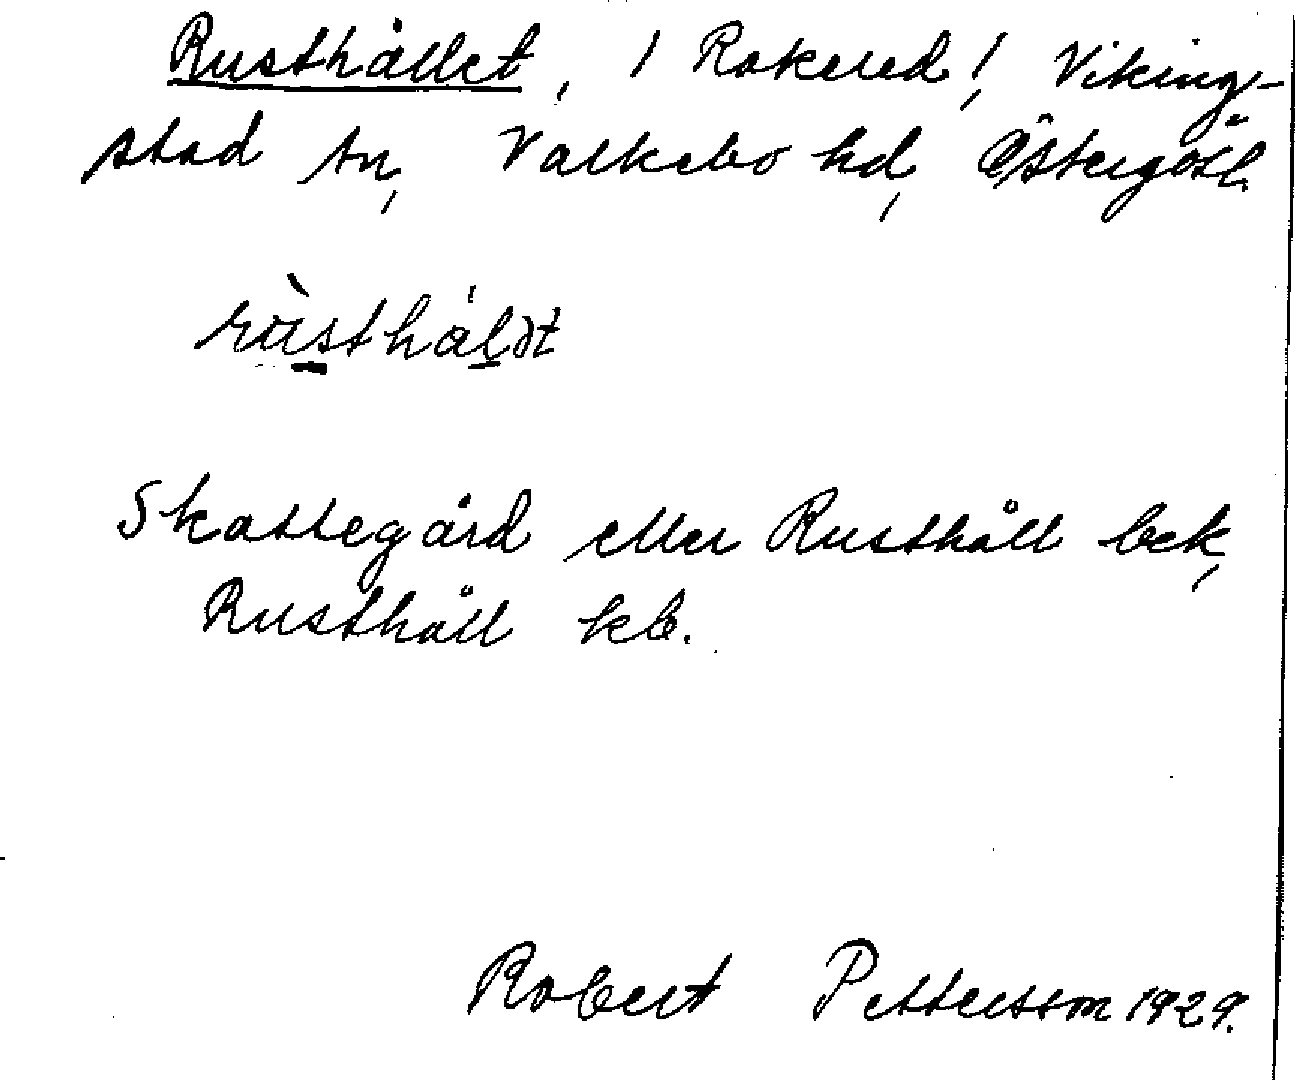 Rusthållet, / Rakered /, Viking-
stad sn, Valkebo hd, Östergötl.
rùsthål̥ət
Skattegård eller Rusthåll bek,
Rusthåll kb.
Robert Pettersson 1929.